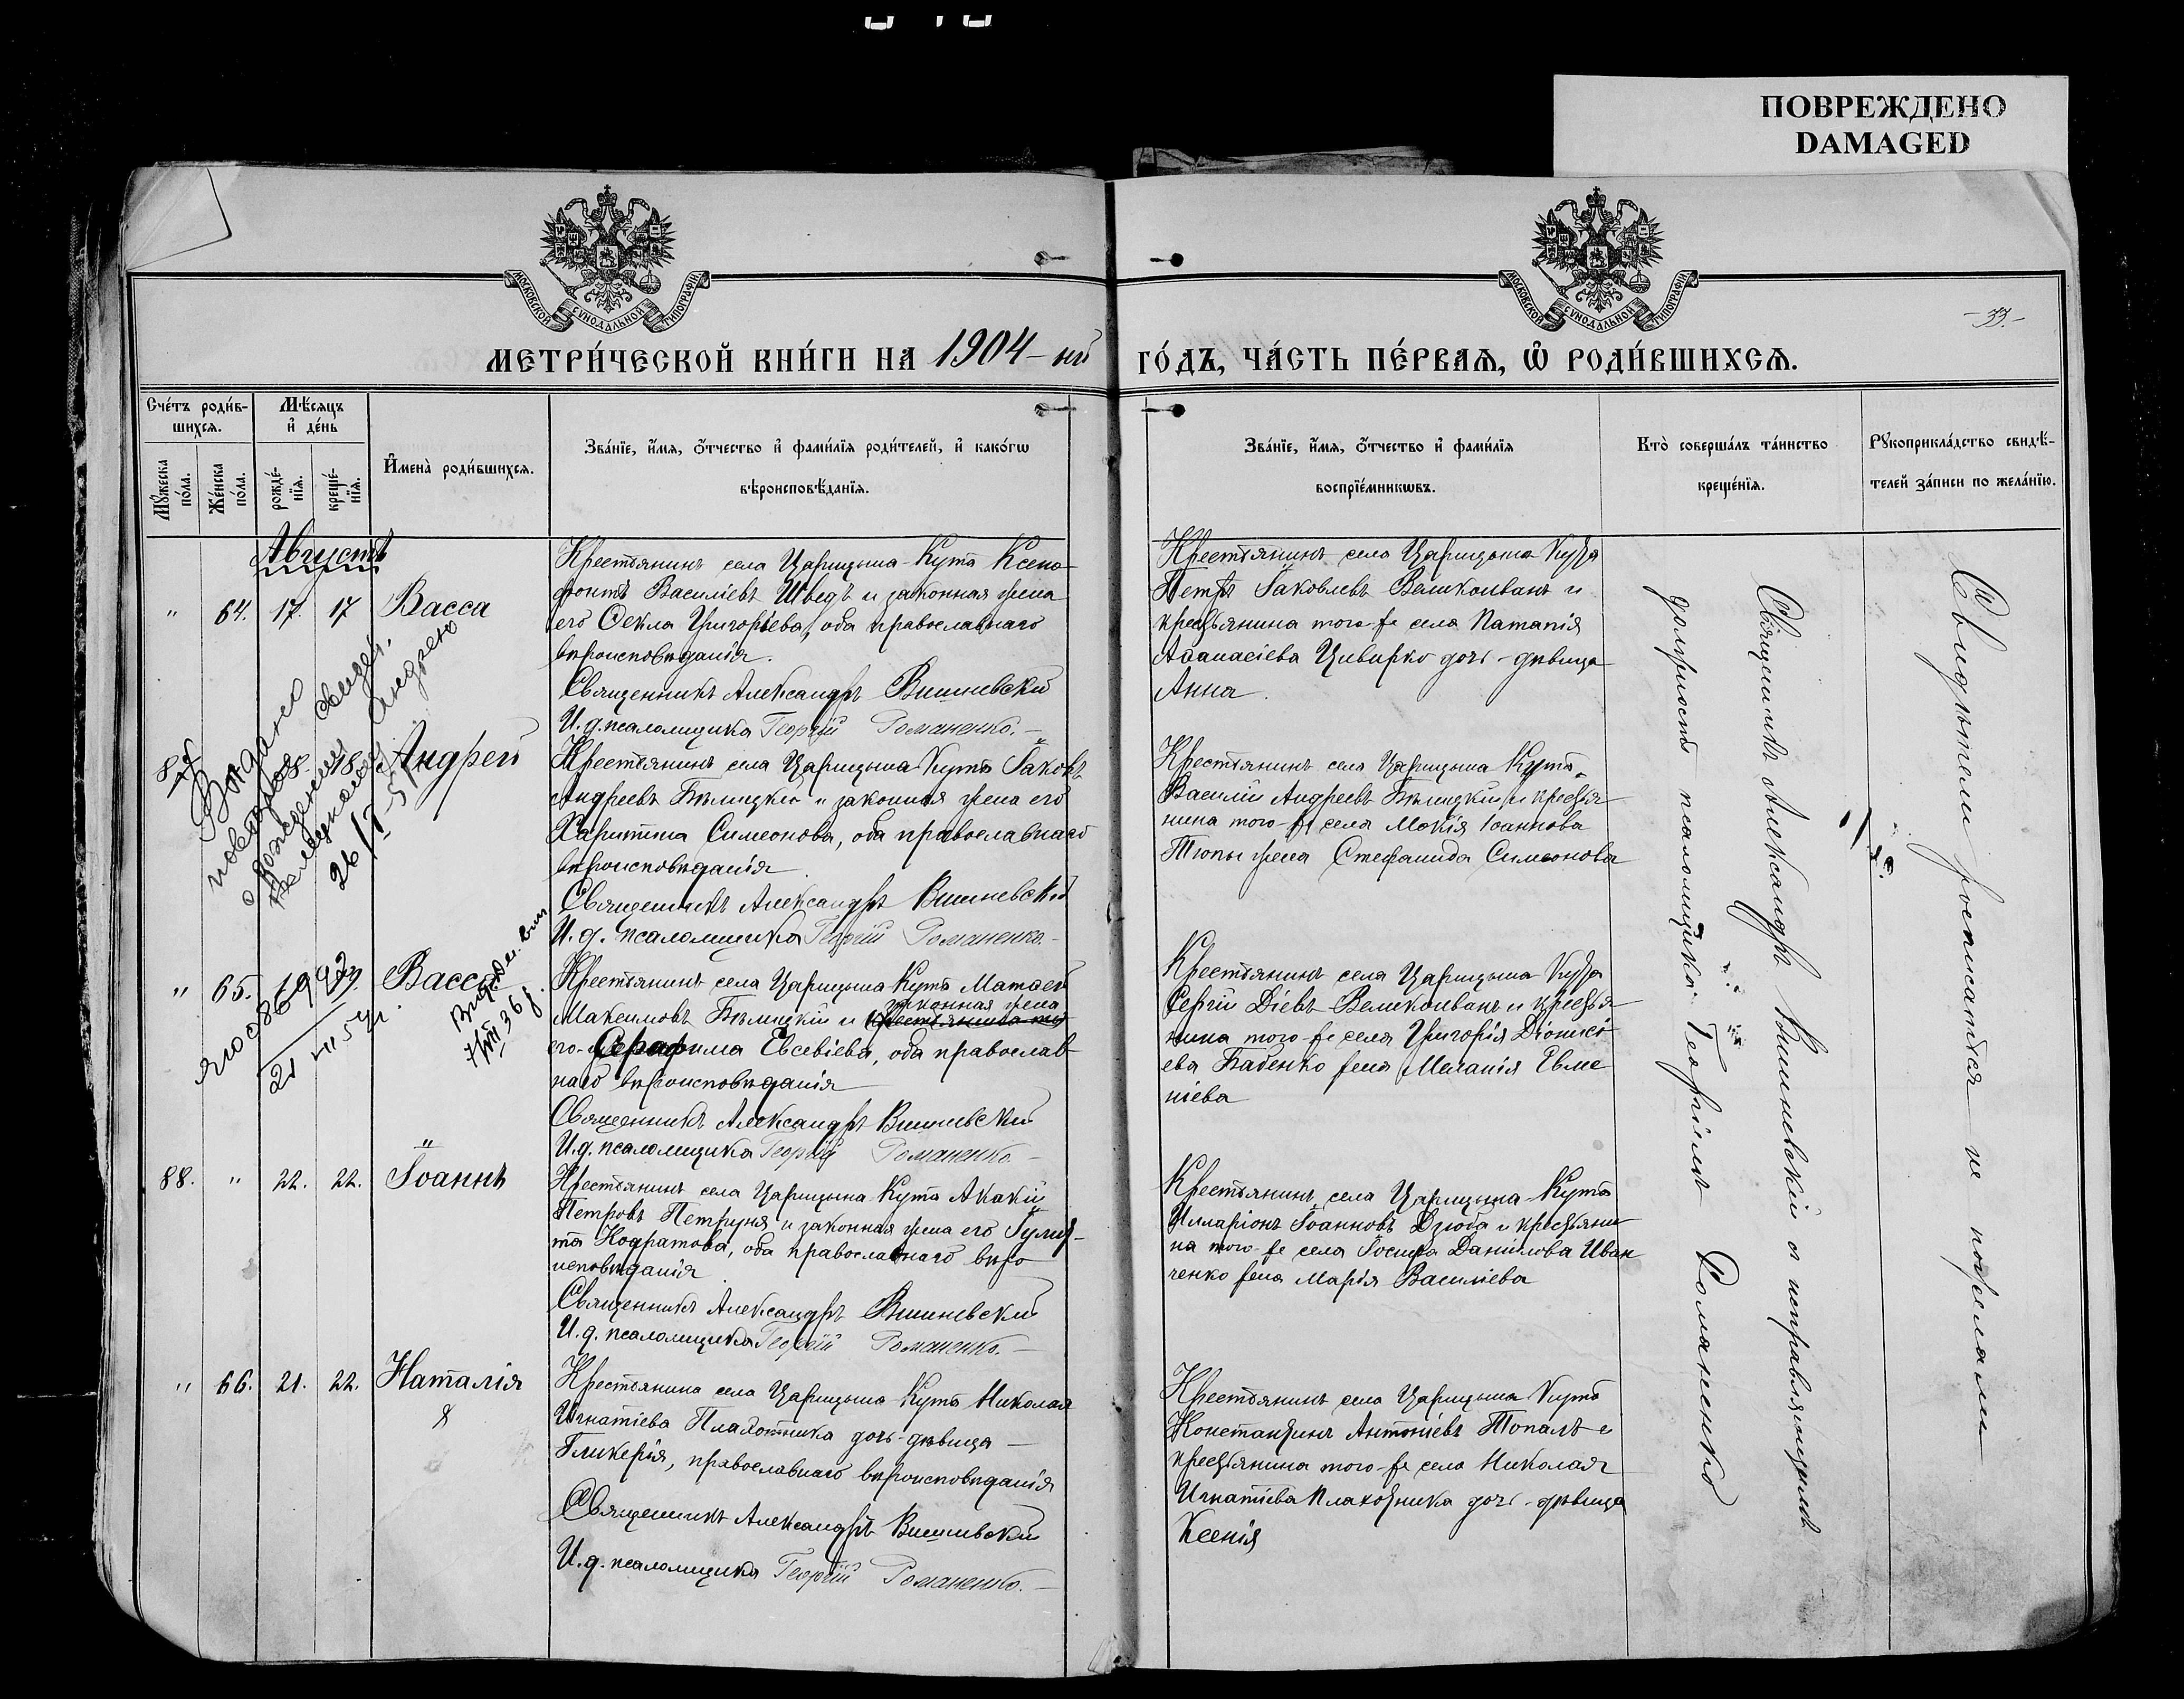 ПОВРЕЖДЕНО
DAMAGED
МОСКОВСКОЙ СѴНОДАЛЬНОЙ ТИПОГРАФІИ
МОСКОВСКОЙ СѴНОДАЛЬНОЙ ТИПОГРАФІИ
МЕТРИ́ЧЕСКОЙ КНИ́ГИ НА 1904-ый ГО́ДЪ, ЧА́СТЬ ПЕ́РВАЯ, Ѡ РОДИ́ВШИХСЯ.
Сче́тъ роди́в-
шихся.
Мꙋ́жеска по́ла.
Же́нска по́ла.
Мѣ́сяцъ
и҆ де́нь
рожде́-
нїя.
креще́-
нїя.
И҆мена̀ роди́вшихся.
Зва́нїе, и҆́мя, ѻ҆́тчество и҆ фами́лїя роди́телей, и҆ како́гѡ
вѣроисповѣ́данїя.
Зва́нїе, и҆́мя, ѻ҆́тчество и҆ фами́лїя
воспрїе́мникѡвъ.
Кто̀ соверша́лъ та́инство
креще́нїя.
Рꙋкоприкла́дство свидѣ́-
телей за́писи по жела́нїю.
Августъ
" 64. 17. 17 Васса
Крестьянинъ села Царицына-Кута Ксено-
фонтъ Василіевъ Шведъ и законная жена
его Ѳекла Григорьева, оба православнаго
вѣроисповѣданія.
Священникъ Александръ Вишневскій
И.д. псаломщика Георгій Романенко.
Крестьянинъ села Царицына Кута
Петръ Іаковлевъ Великоиванъ и
крестьянина того-же села
Аѳанасіева Цивирко дочь-дѣвица
Анна.
18. Андрей
Крестьянинъ села Царицына Кута Іаковъ
Андреевъ Бѣлицкій и законная жена его
Харитина Симеонова, оба православнаго
вѣроисповѣданія
Священникъ Александръ Вишневскій
И.д. псаломщика Георгій Романенко.
Крестьянинъ села Царицына Кута
Василій Андреевъ Бѣлицкій и крестья-
нина того-же села Мокія Іоаннова
Тюпы жена Стефанида Симеонова
Выдано
повторное свидет.
о рождении Андрею
" 65. Васса
Крестьянинъ села Царицына Кута Матѳей
Максимовъ Бѣлицкій и законная жена
его Серафима Евсевіева, оба православ-
наго вѣроисповѣданія
Священникъ Александръ Вишневскій
И.д. псаломщика Георгій Романенко.
Крестьянинъ села Царицына Кута
Сергій Діевъ Великоиванъ и крестья-
нина того-же села Григорія Діонисі-
ева Бабенко жена Меланія Евме-
ніева
88. " 22. 22. Іоаннъ
Крестьянинъ села Царицына-Кута Акакій
Петровъ Петруня и законная жена его Іулит-
та Кодратова, оба православнаго вѣро-
исповѣданія
Священникъ Александръ Вишневскій
И.д. псаломщика Георгій Романенко.
Крестьянинъ села Царицына-Кута
Илларіонъ Іоанновъ Дзюба и крестьяни-
на того-же села Іосифа Даніилова Иван-
ченко жена Марія Василіева
" 66. 21. 22. Наталія
Крестьянина села Царицына Кута Николая
Игнатіева Плахотника дочь-дѣвица
Гликерія, православнаго вѣроисповѣданія
Священникъ Александръ Вишневскій
И.д. псаломщика Георгій Романенко.
Крестьянинъ села Царицына Кута
Константинъ Антоніевъ Топалъ и
крестьянина того-же села Николая
Игнатіева Плахотника дочь-дѣвица
Ксенія
Священникъ Александръ Вишневскій съ исправляющимъ
должность псаломщика Георгіемъ Романенко
Свидѣтелями росписаться не